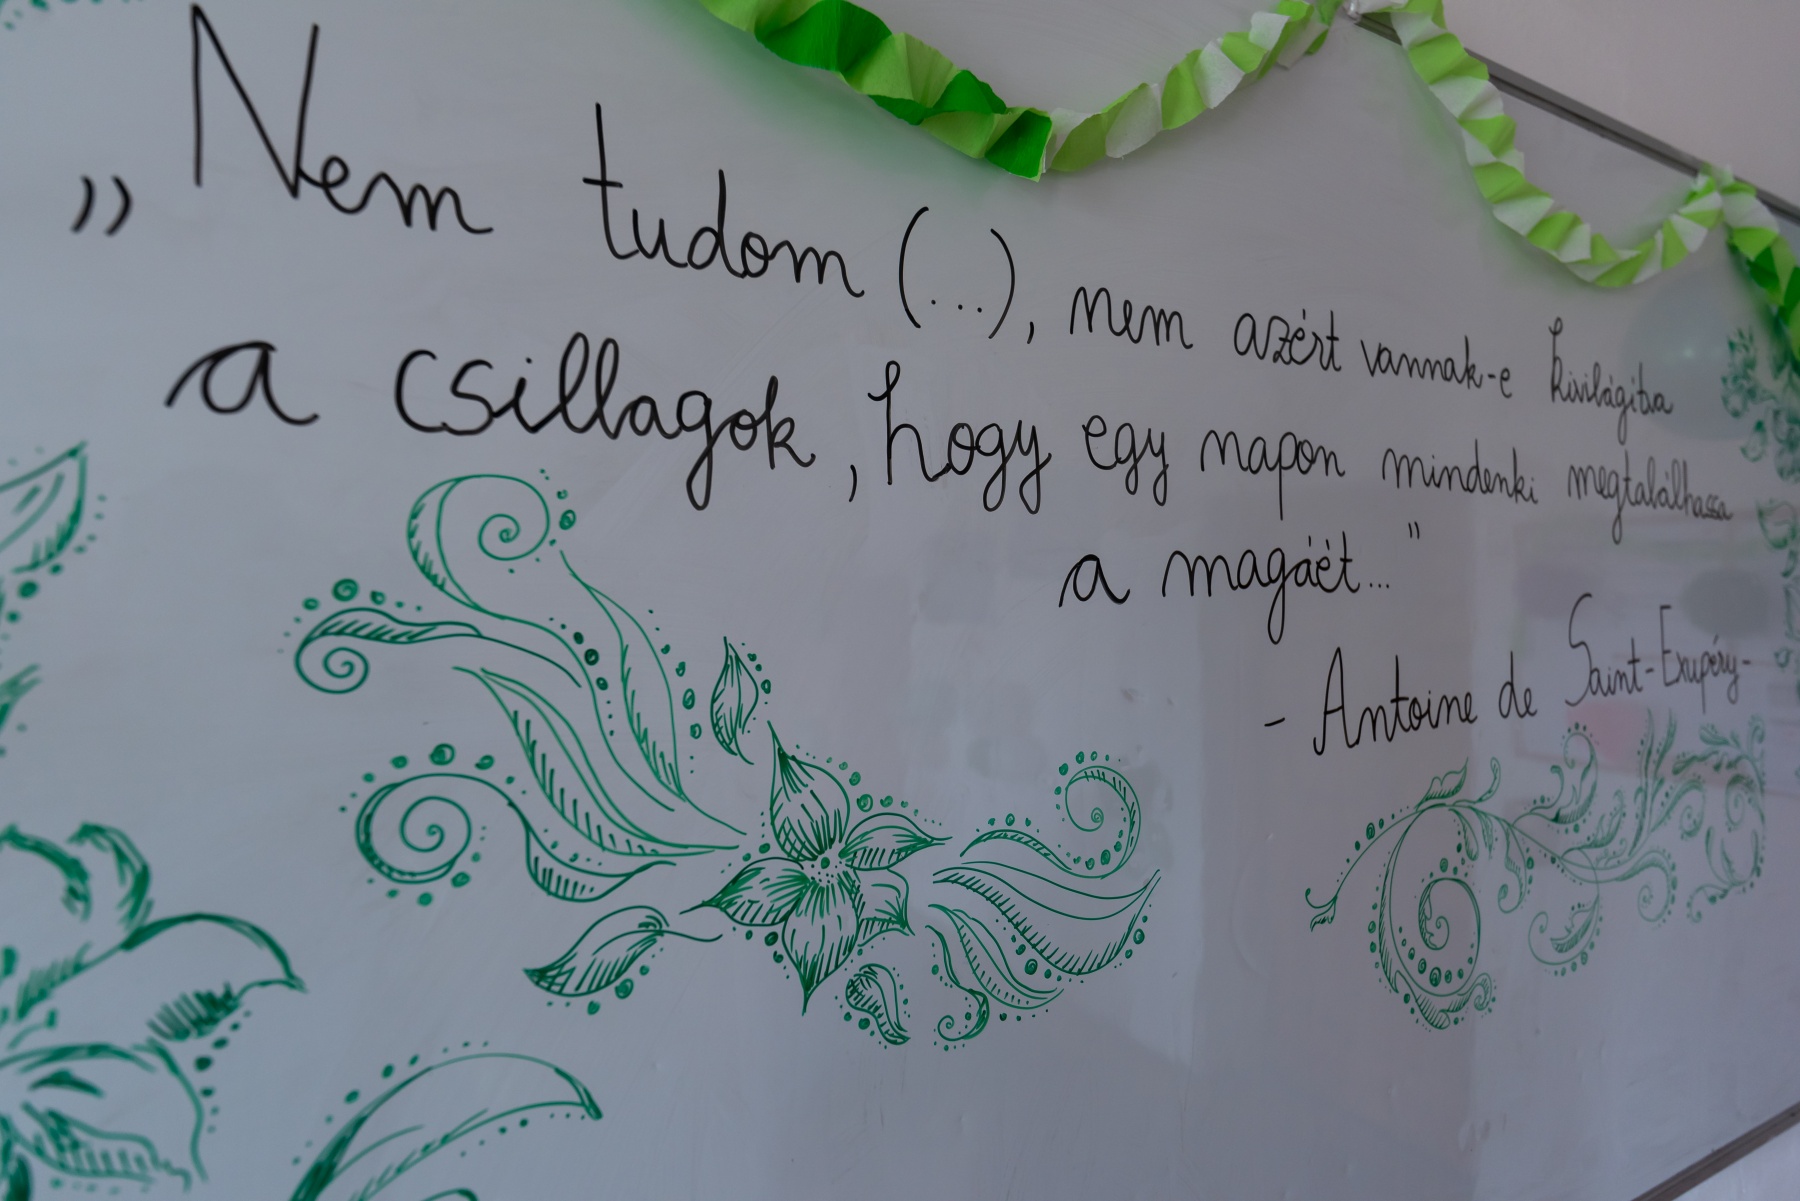 „Nem tudom (...), nem azért vannak-e kivilágítva
a csillagok, hogy egy napon mindenki megtalálhassa
a magáét..."
- Antoine de Saint-Exupéry-